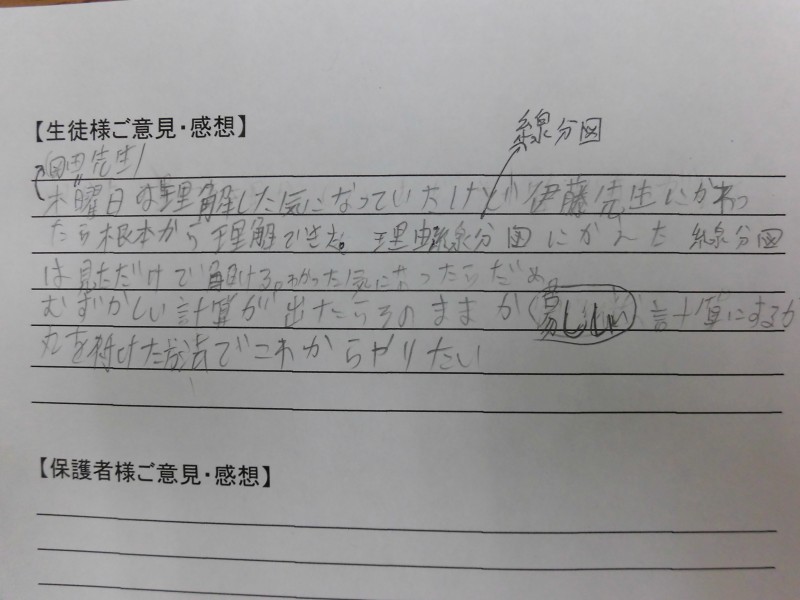 【生徒様ご意見・感想】
線分図
田先生
木曜日は理解した気になっていたけど伊藤先生にかわっ
たら根本から理解できた。理由線分図にかえた 線分図
は見ただけで解ける。わかった気になったらだめ。
むずかしい計算が出たらそのままか 計算にするか
丸を付けた方法でこれからやりたい
【保護者様ご意見・感想】